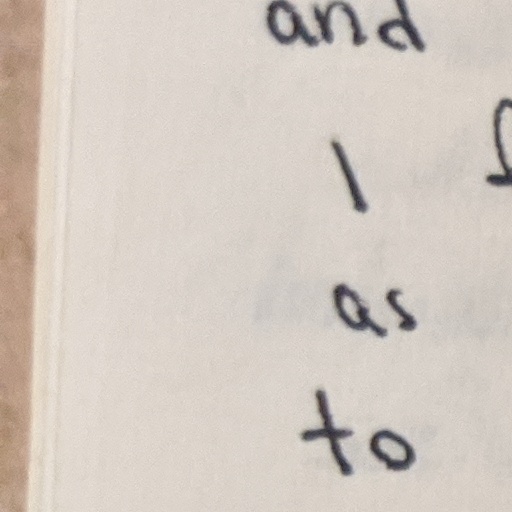 and
I
as
to